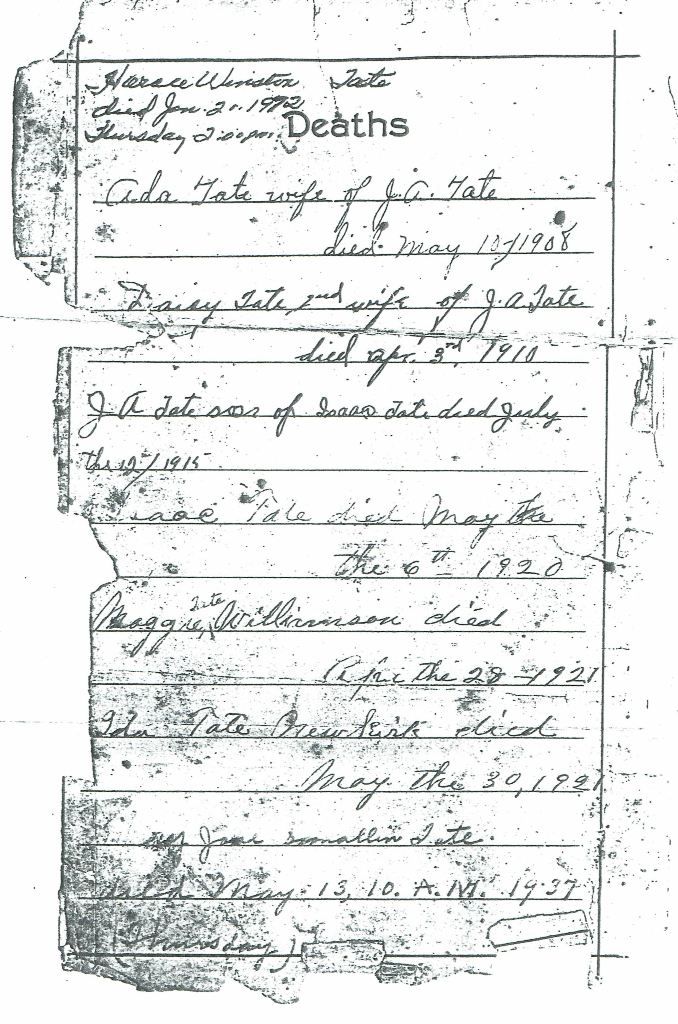 Horace Winston Tate
died Jan. 20. 1972
Thursday 2:00 pm.
Deaths
Ada Tate wife of J.A. Tate
died May 10/1908
Daisy Tate 2nd wife of J.A Tate
died apr. 3rd, 1910
J A Tate son of Isaac Tate died July
the 12/1915
Isaac Tate died May the
the 6th 1920
Maggie Tate Williamson died
Apr the 28-1921
Ida Tate Newkirk died
May the 30, 1921
Jane Tate.
died May. 13, 10. A.M. 1937
(Thursday)